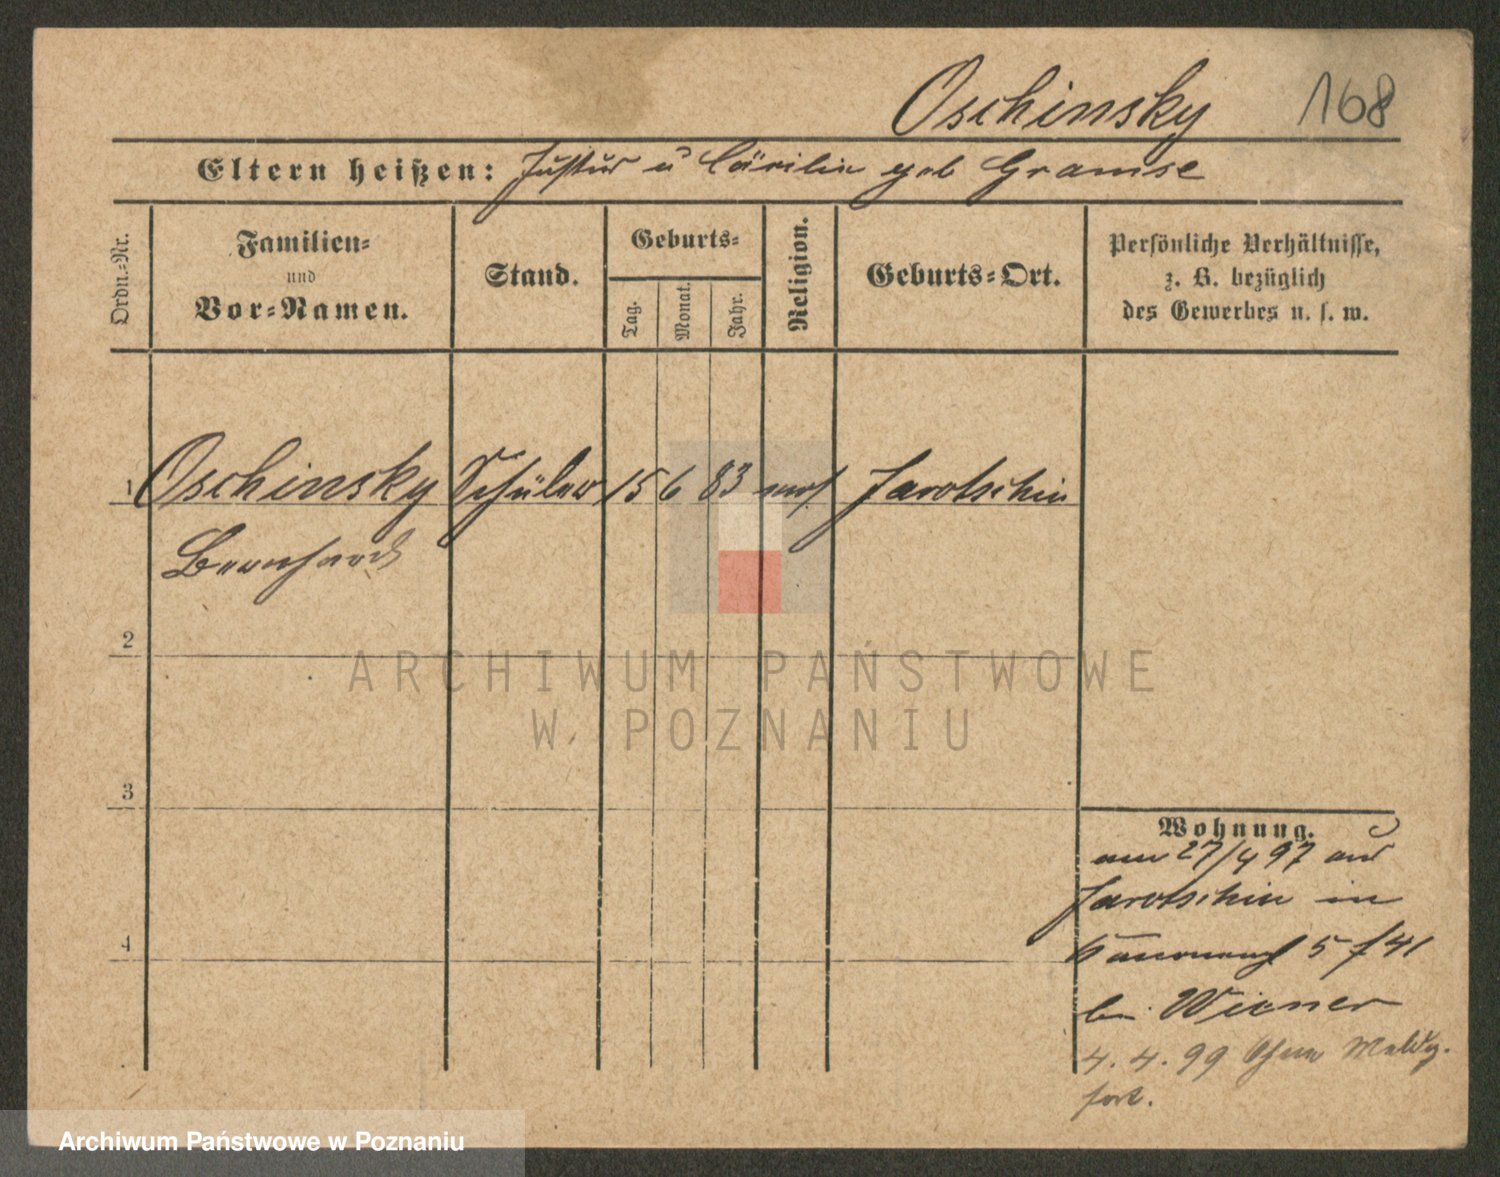 Oschinsky 168
Eltern heißen: Justus u Cäcilie geb Gramse
Ordn.-Nr.
Familien-
und
Vor-Namen.
Stand.
Geburts-
Tag.
Monat.
Jahr.
Religion.
Geburts-Ort.
Persönliche Verhältnisse,
z. B. bezüglich
des Gewerbes u. s. w.
1 Oschinsky Schüler 15 6 83 mos Jarotschin
Bernhard
2
ARCHIWUM PAŃSTWOWE
W POZNANIU
3
Wohnung.
27/4 97 aus
Jarotschin in
5 / 41
bei Wiener
4
4. 4. 99 Ohne Meldg.
fort.
Archiwum Państwowe w Poznaniu